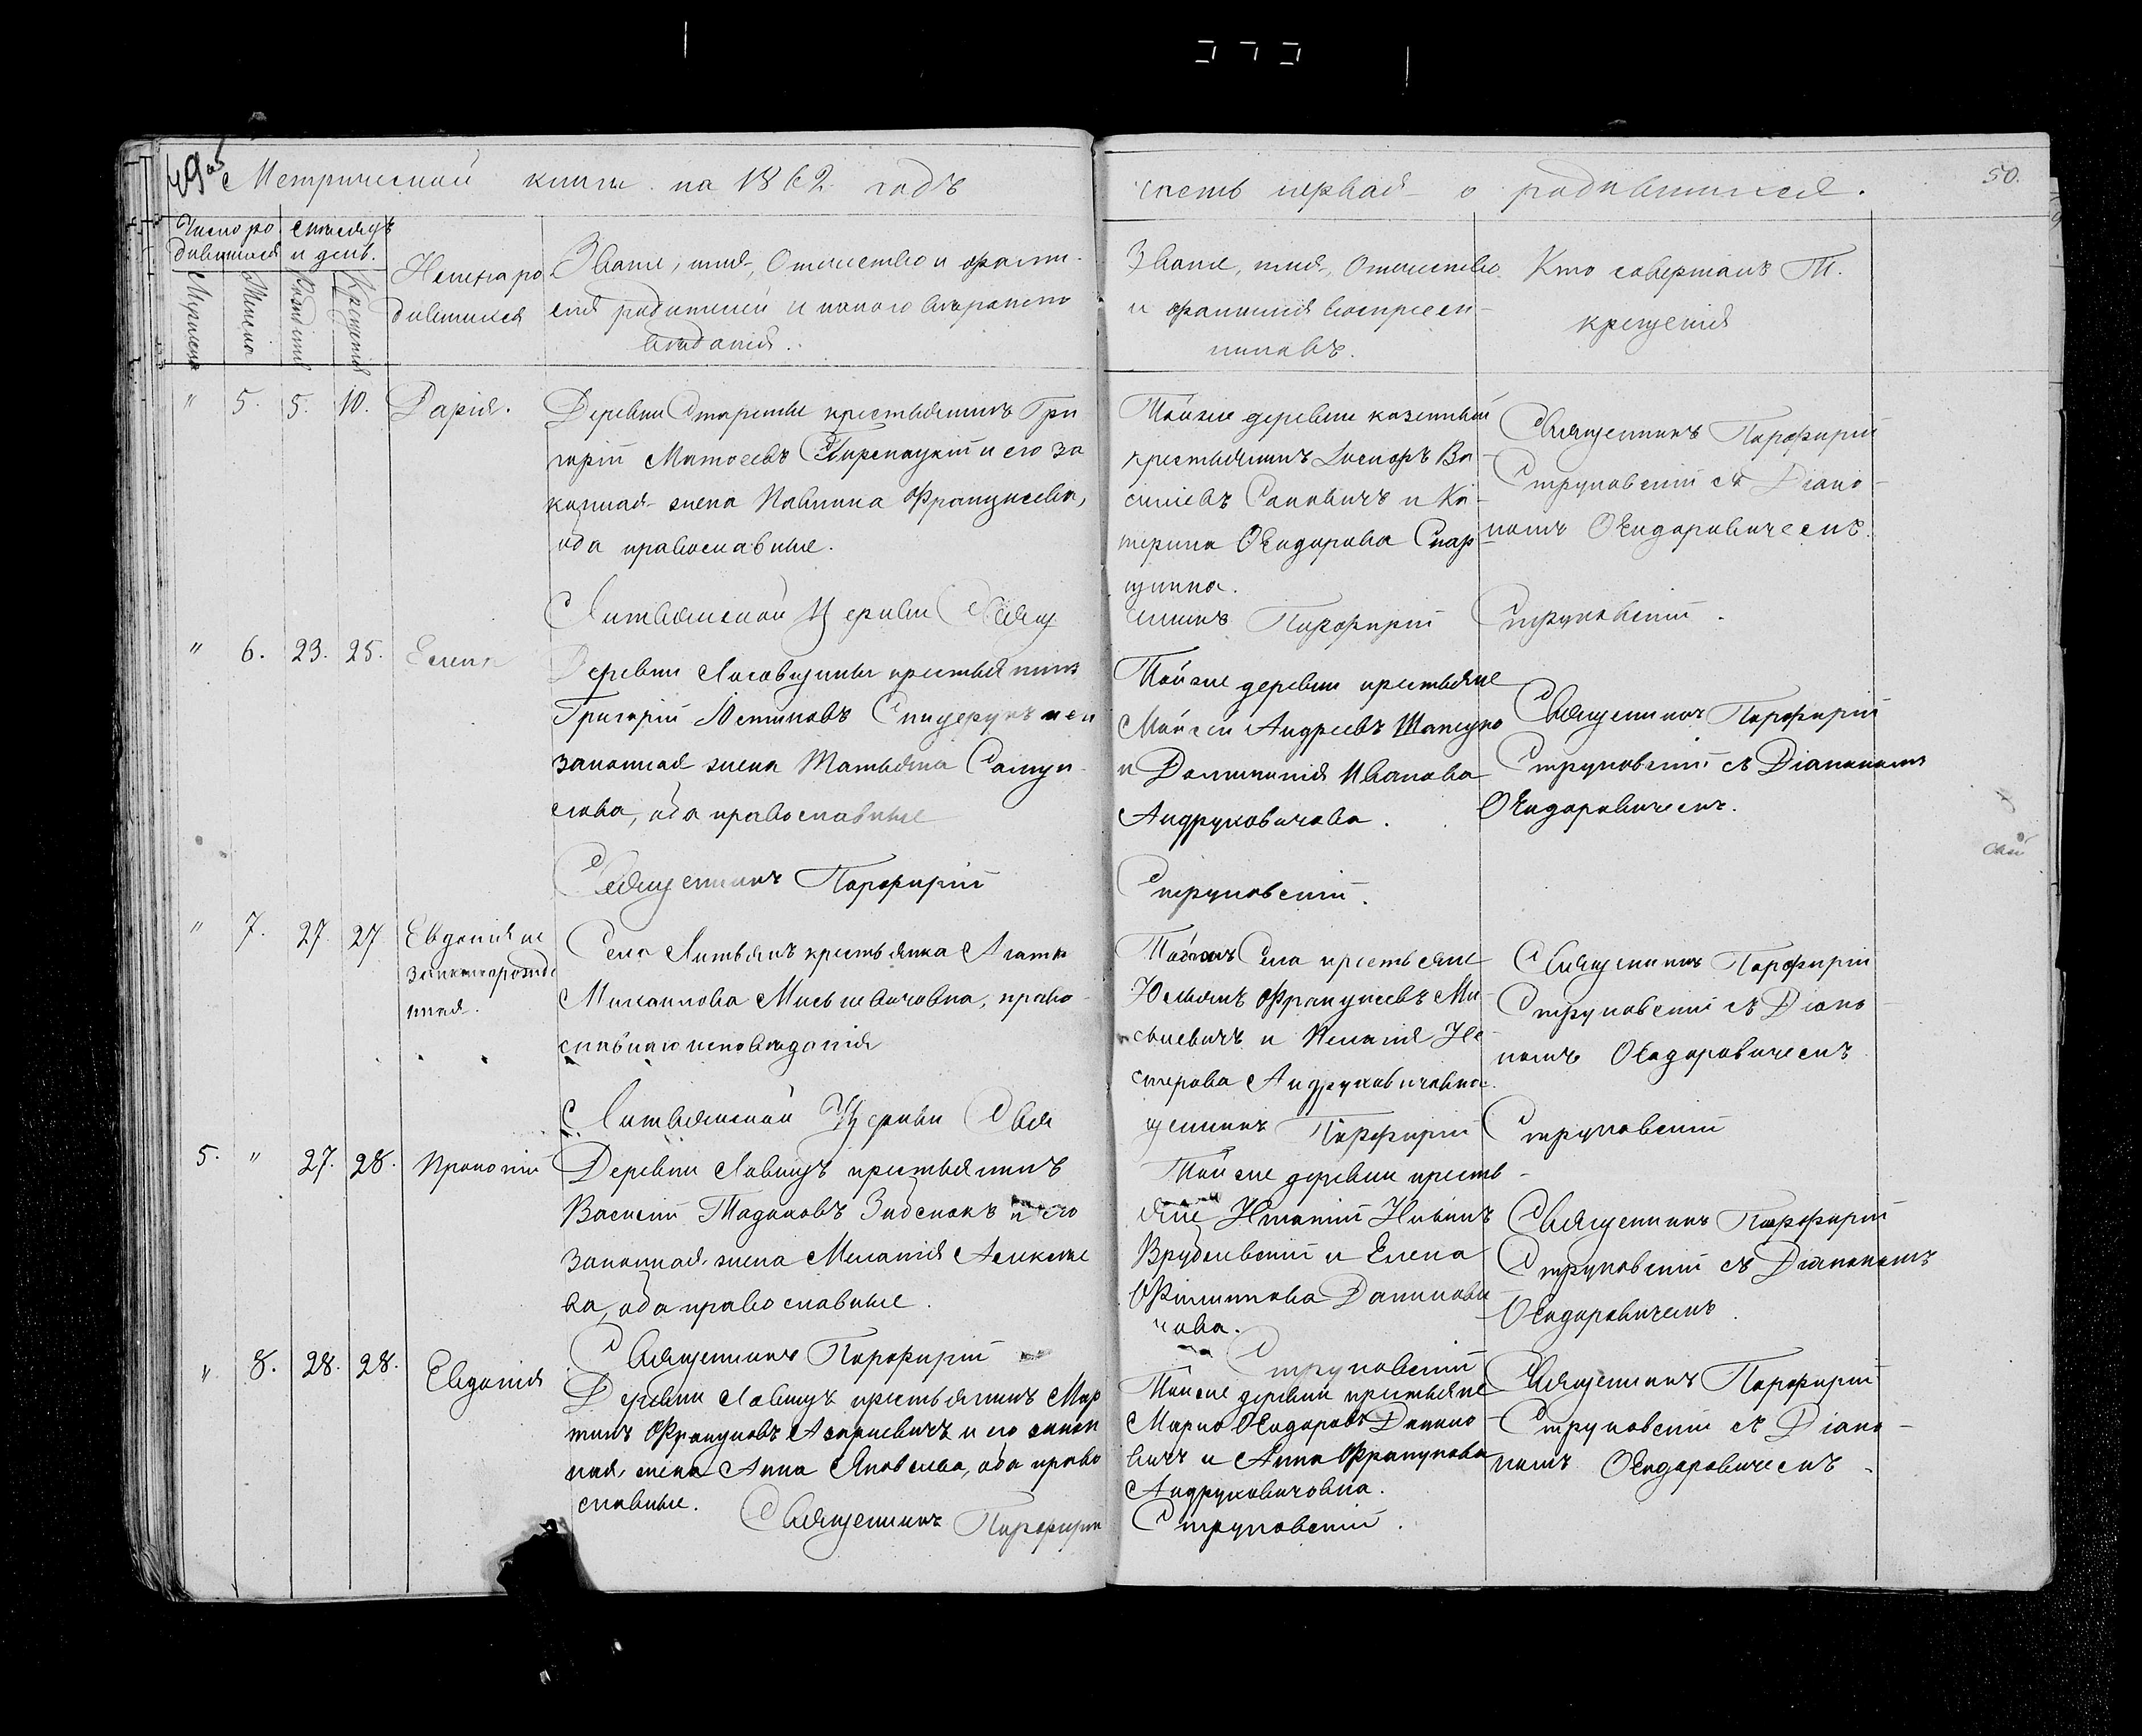 49об
Метрической книги на 1862 годъ
часть первая о родившихся.
50.
Число ро
дившихся
Мѣсяцъ
и день.
Мужеска
Женска
Рожденія
Крещенія
Имена ро
дившихся
Званіе, имя, Отчество и фами-
лія родителей и какого вѣроиспо
вѣданія.
Званіе, имя, Отчество
и фамилія воспреем-
никовъ.
Кто совершалъ Т.
крещенія
" 5. 5. 10. Дарія.
Деревни крестьянинъ Гри
горій и его за
конная жена Павлина Францискова,
оба православные.
Тойже деревни казенный
крестьянинъ Ва
сильевъ и Ка-
терина Ѳеодорова
Священникъ Порфирій
Струковскій съ Діако-
номъ Ѳеодоровичемъ.
Литвянской Церкви Свящ
енникъ Порфирій Струковскій.
" 6. 23. 25. Елена
Деревни крестьянинъ
Григорій Устиновъ и его
законная жена Татьяна Самуи
лова, оба православные
Тойже деревни крестьяне
Мойсей Андреевъ
и Доминикія Иванова
Андруковичова.
Священникъ Порфирій
Струковскій съ Діакономъ
Ѳеодоровичемъ.
Священникъ Порфирій
Струковскій.
" 7. 27. 27 Евдокія не
законнорожде
нная.
Села Литвянъ крестьянка Агата
Михаилова Мисьневичовна, право-
славнаго исповѣданія
Села крестьяне
Юльянъ Францисковъ Ми-
сьневичъ и Не-
стерова Андруковичовна.
Священникъ Порфирій
Струковскій съ Діако-
номъ Ѳеодоровичемъ
Литвянской Церкви Свя
щенникъ Порфирій Струковскій
5. " 27. 28. Прокопій
Деревни крестьянинъ
Василій и его
законная жена Меланія Алексѣе
ва, оба православные.
Тойже деревни кресть-
яне Игнатій
Врублевскій и Елена
Филиппова Данилови
чова.
Священникъ Порфирій
Струковскій съ Діакономъ
Ѳеодоровичемъ.
Священникъ Порфирій
Струковскій
" 8. 28. 28. Евдокія
Деревни крестьянинъ Мар
тинъ Францковъ и его закон
ная жена Анна Яковлева, оба право
славные.
Тойже деревни крестьяне
Марко Ѳеодоровъ Данило-
вичъ и Анна Францукова
Андруковичовна.
Священникъ Порфирій
Струковскій съ Діако-
номъ Ѳеодоровичемъ.
Священникъ Порфирій
Струковскій.